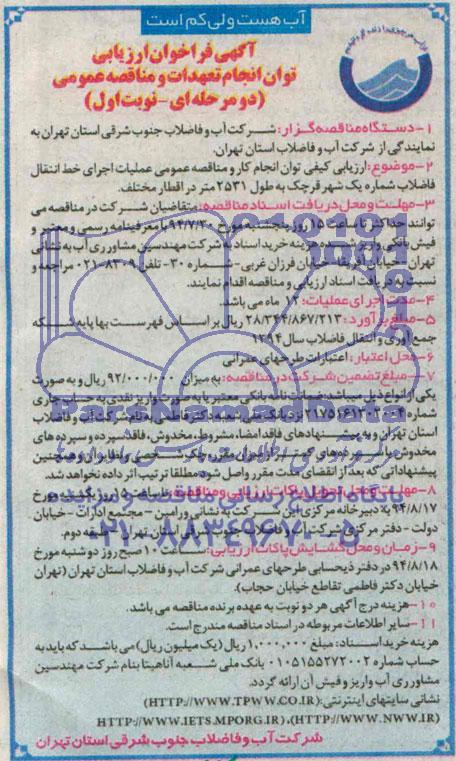 آب هست ولی کم است
آگهی فراخوان ارزیابی
توان انجام تعهدات و مناقصه عمومی
(دو مرحله ای - نوبت اول)
۱- دستگاه مناقصه گزار: شرکت آب و فاضلاب جنوب شرقی استان تهران به
نمایندگی از شرکت آب و فاضلاب استان تهران.
۲- موضوع: ارزیابی کیفی توان انجام کار و مناقصه عمومی عملیات اجرای خط انتقال
فاضلاب شماره یک شهر قرچک به طول ۲۵۳۱ متر در اقطار مختلف.
۳- مهلت و محل دریافت اسناد مناقصه: متقاضیان شرکت در مناقصه می
توانند حداکثر تا ساعت ۱۵ روز پنجشنبه مورخ ۹۴/۷/۳۰ با معرفینامه رسمی و معتبر و
فیش بانکی واریز شده هزینه خرید اسناد به شرکت مهندسین مشاور ری آب به نشانی
تهران - خیابان آفریقا - خیابان فرزان غربی - شماره ۳۰ - تلفن ۸۳۰۹-۰۲۱ مراجعه و
نسبت به دریافت اسناد ارزیابی و مناقصه اقدام نمایند.
۴- مدت اجرای عملیات: ۱۲ ماه می باشد.
۵- مبلغ برآورد: ۲۸/۳۴۴/۸۶۷/۳۱۳ ریال بر اساس فهرست بها پایه شبکه
جمع آوری و انتقال فاضلاب سال ۱۳۹۴
۶- محل اعتبار: اعتبارات طرحهای عمرانی
۷- مبلغ تضمین شرکت در مناقصه: به میزان ۹۲/۰۰۰/۰۰۰ ریال و به صورت
یکی از انواع ذیل میباشد ضمانت نامه بانکی معتبر یا به صورت واریز نقدی به حساب جاری
شماره نزد بانک ملی شعبه دکتر فاطمی بنام شرکت آب و فاضلاب
استان تهران و به پیشنهادهای فاقد امضا، مشروط، مخدوش، فاقد سپرده و سپرده های
مخدوش یا سپرده های کمتر از میزان مقرر، چک شخصی و نظایر آن و همچنین
پیشنهاداتی که بعد از انقضای مدت مقرر واصل شود مطلقا ترتیب اثر داده نخواهد شد.
۸- مهلت و محل تحویل پاکات ارزیابی و مناقصه: تا ساعت ۱۵ روز یکشنبه مورخ
۹۴/۸/۱۷ به دبیرخانه مرکزی این شرکت به نشانی ورامین - مجتمع ادارات - خیابان
دولت - دفتر مرکزی شرکت آب و فاضلاب جنوب شرقی استان تهران طبقه دوم.
۹- زمان و محل گشایش پاکات ارزیابی: ساعت ۱۰ صبح روز دوشنبه مورخ
۹۴/۸/۱۸ در دفتر ذیحسابی طرحهای عمرانی شرکت آب و فاضلاب استان تهران (تهران
خیابان دکتر فاطمی تقاطع خیابان حجاب).
۱۰- هزینه درج آگهی هر دو نوبت به عهده برنده مناقصه می باشد.
۱۱- سایر اطلاعات مربوطه در اسناد مناقصه مندرج است.
هزینه خرید اسناد: مبلغ ۱,۰۰۰,۰۰۰ ریال (یک میلیون ریال) می باشد که باید به
حساب شماره ۰۱۰۵۱۵۵۲۷۲۰۰۲ بانک ملی شعبه آناهیتا بنام شرکت مهندسین
مشاور ری آب واریز و فیش آن ارائه گردد.
نشانی سایتهای اینترنتی: (HTTP://WWW.TPWW.CO.IR)
HTTP://WWW.IETS.MPORG.IR)،(HTTP://WWW.NWW.IR)
شرکت آب و فاضلاب جنوب شرقی استان تهران
پایگاه اطلاع رسانی مناقصه و مزایده
۰۲۱-۸۸۳۴۹۶۷۰-۵